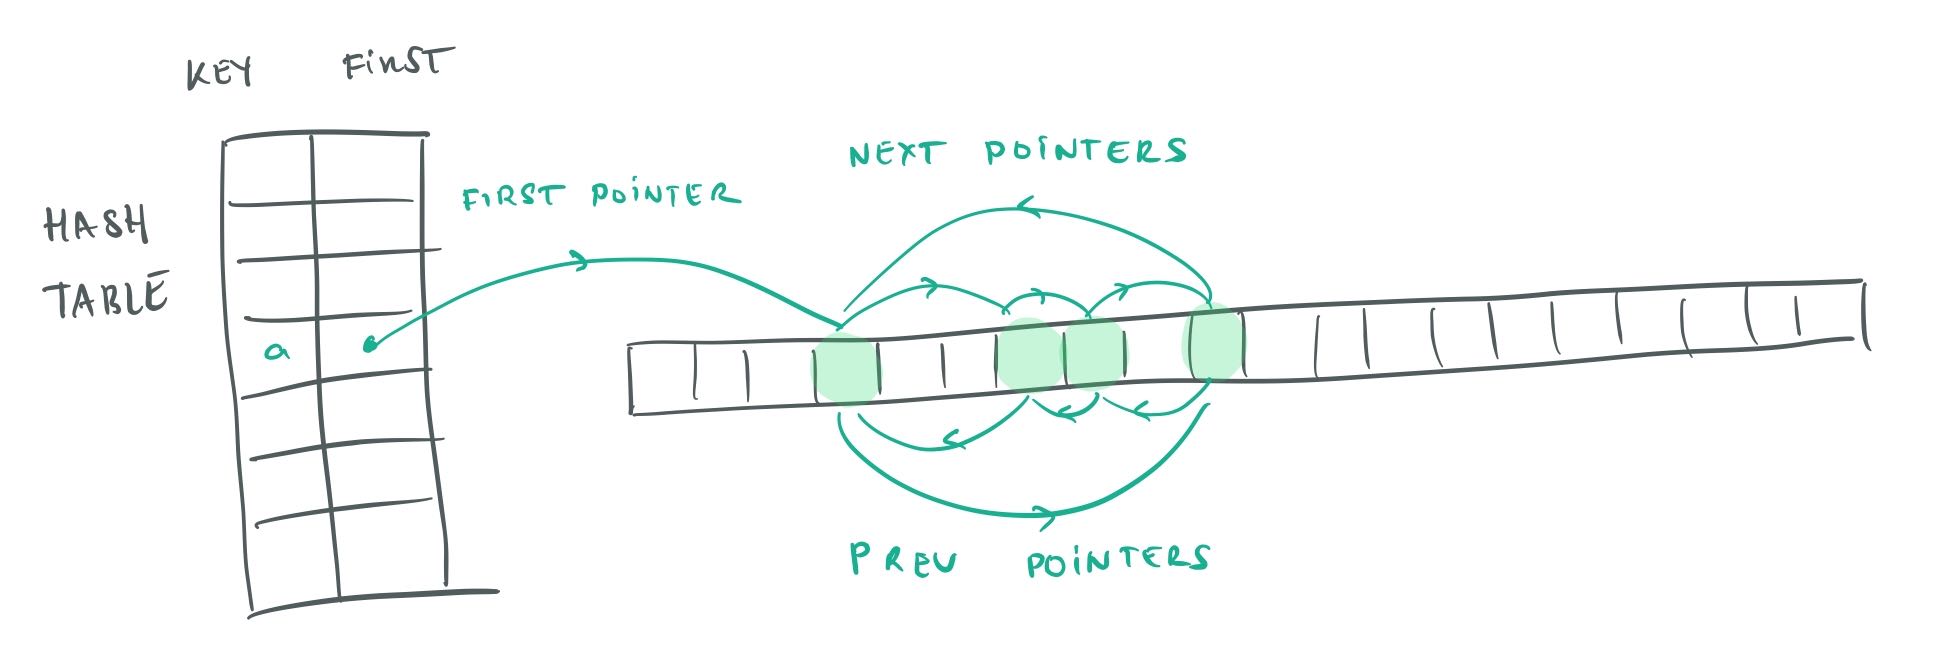 KEY FIRST
HASH
TABLE
FIRST POINTER
a
NEXT POINTERS
PREV POINTERS